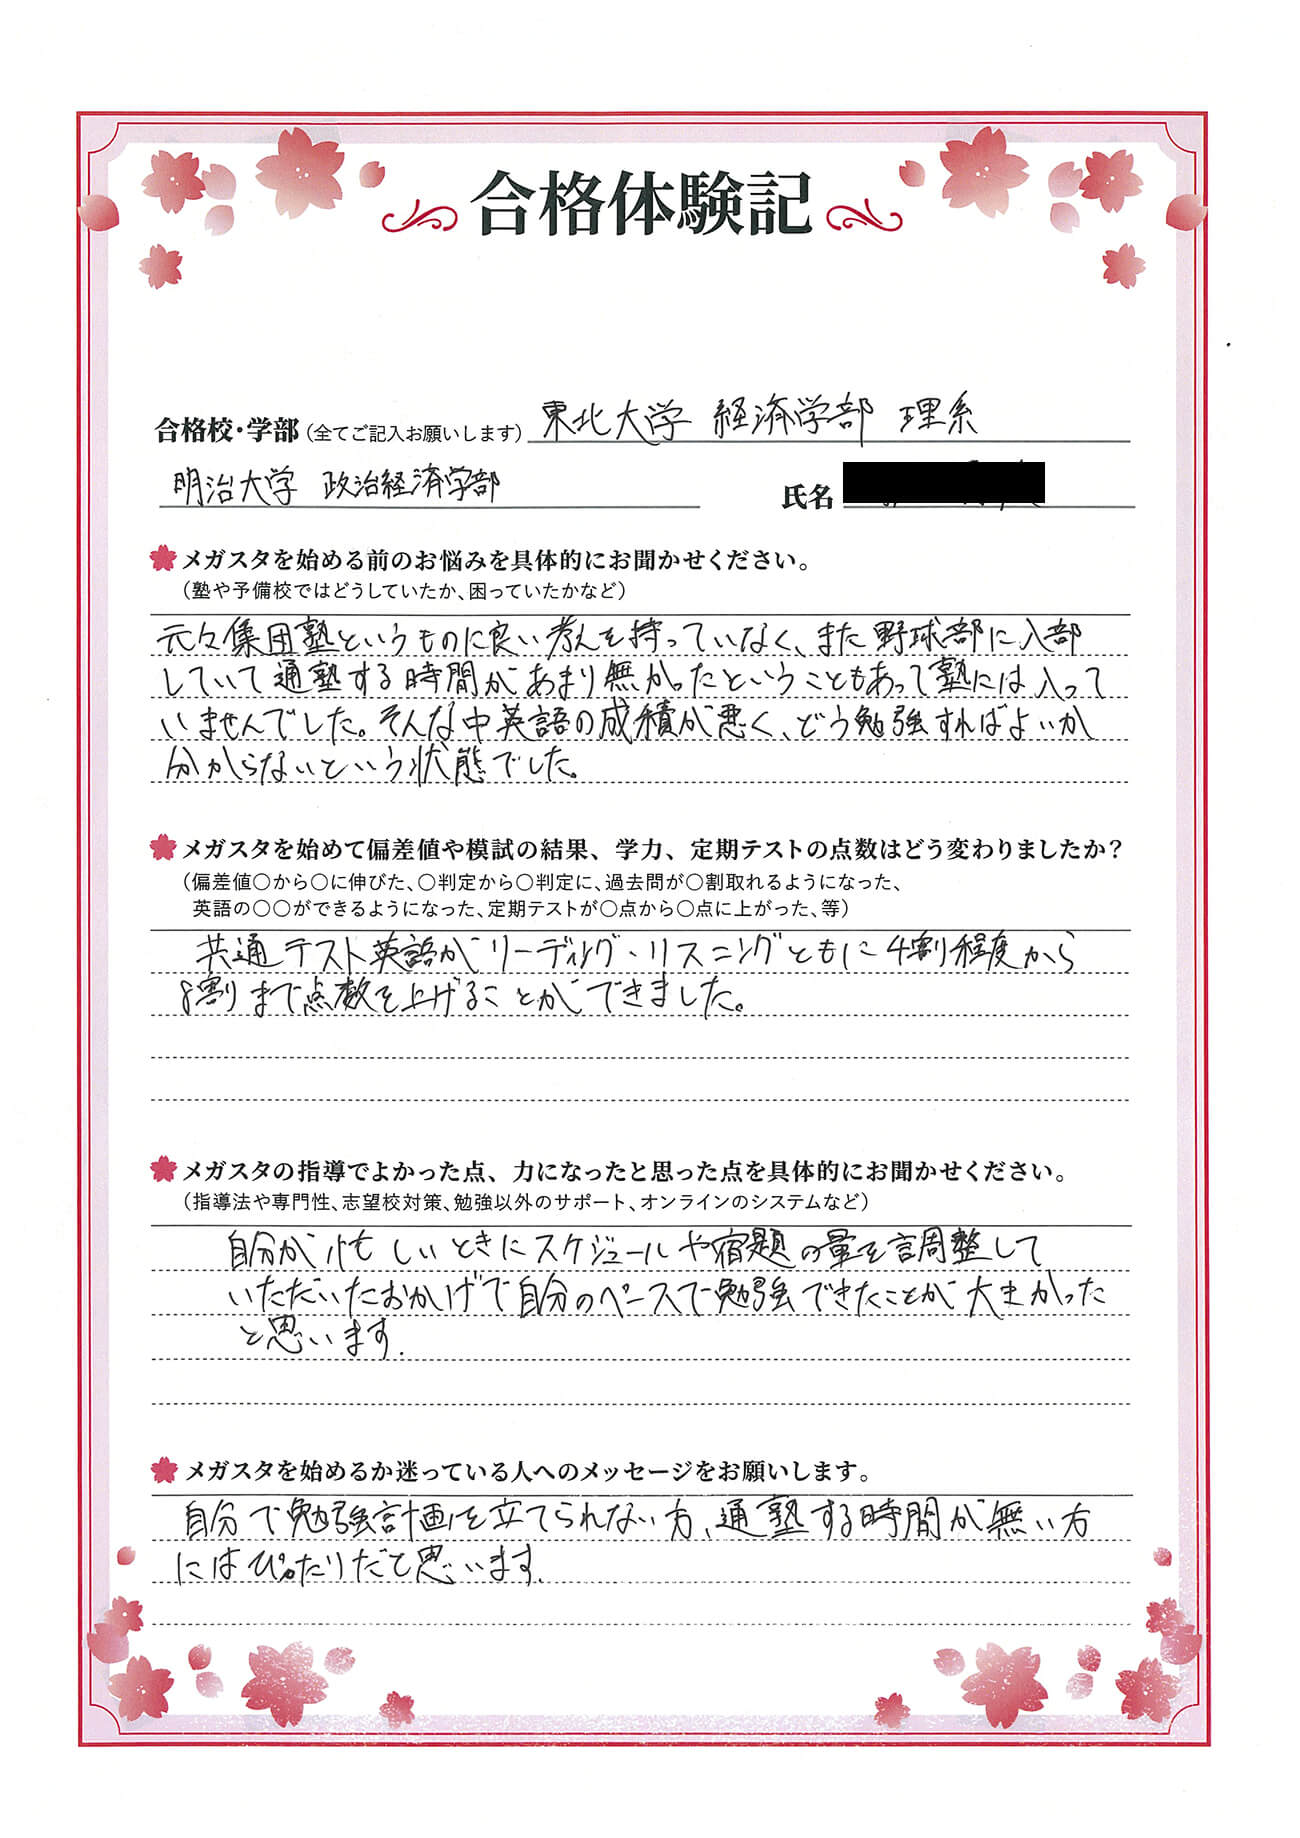 合格体験記
合格校・学部(全てご記入お願いします) 東北大学 経済学部 理系
明治大学 政治経済学部 氏名
メガスタを始める前のお悩みを具体的にお聞かせください。
(塾や予備校ではどうしていたか、困っていたかなど)
元々集団塾というものに良い考えを持っていなく、また野球部に入部
していて通塾する時間があまり無かったということもあって塾には入って
いませんでした。そんな中英語の成績が悪く、どう勉強すればよいか
分からないという状態でした。
メガスタを始めて偏差値や模試の結果、学力、定期テストの点数はどう変わりましたか?
(偏差値○から○に伸びた、○判定から○判定に、過去問が○割取れるようになった、
英語の○○ができるようになった、定期テストが○点から○点に上がった、等)
共通テスト英語がリーディング・リスニングともに4割程度から
8割まで点数を上げることができました。
メガスタの指導でよかった点、力になったと思った点を具体的にお聞かせください。
(指導法や専門性、志望校対策、勉強以外のサポート、オンラインのシステムなど)
自分が忙しいときにスケジュールや宿題の量を調整して
いただいたおかげで自分のペースで勉強できたことが大きかった
と思います.
メガスタを始めるか迷っている人へのメッセージをお願いします。
自分で勉強計画を立てられない方、通塾する時間が無い方
にはぴったりだと思います.